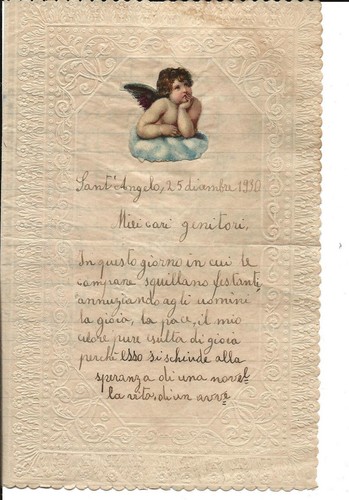 Sant'Angelo, 25 dicembre 1930
Miei cari genitori,
In questo giorno in cui le
campane squillano festanti,
annunziando agli uomini
la gioia, la pace, il mio
cuore pure esulta di gioia
perchè esso si schiude alla
speranza di una novel
la vita, di un avve